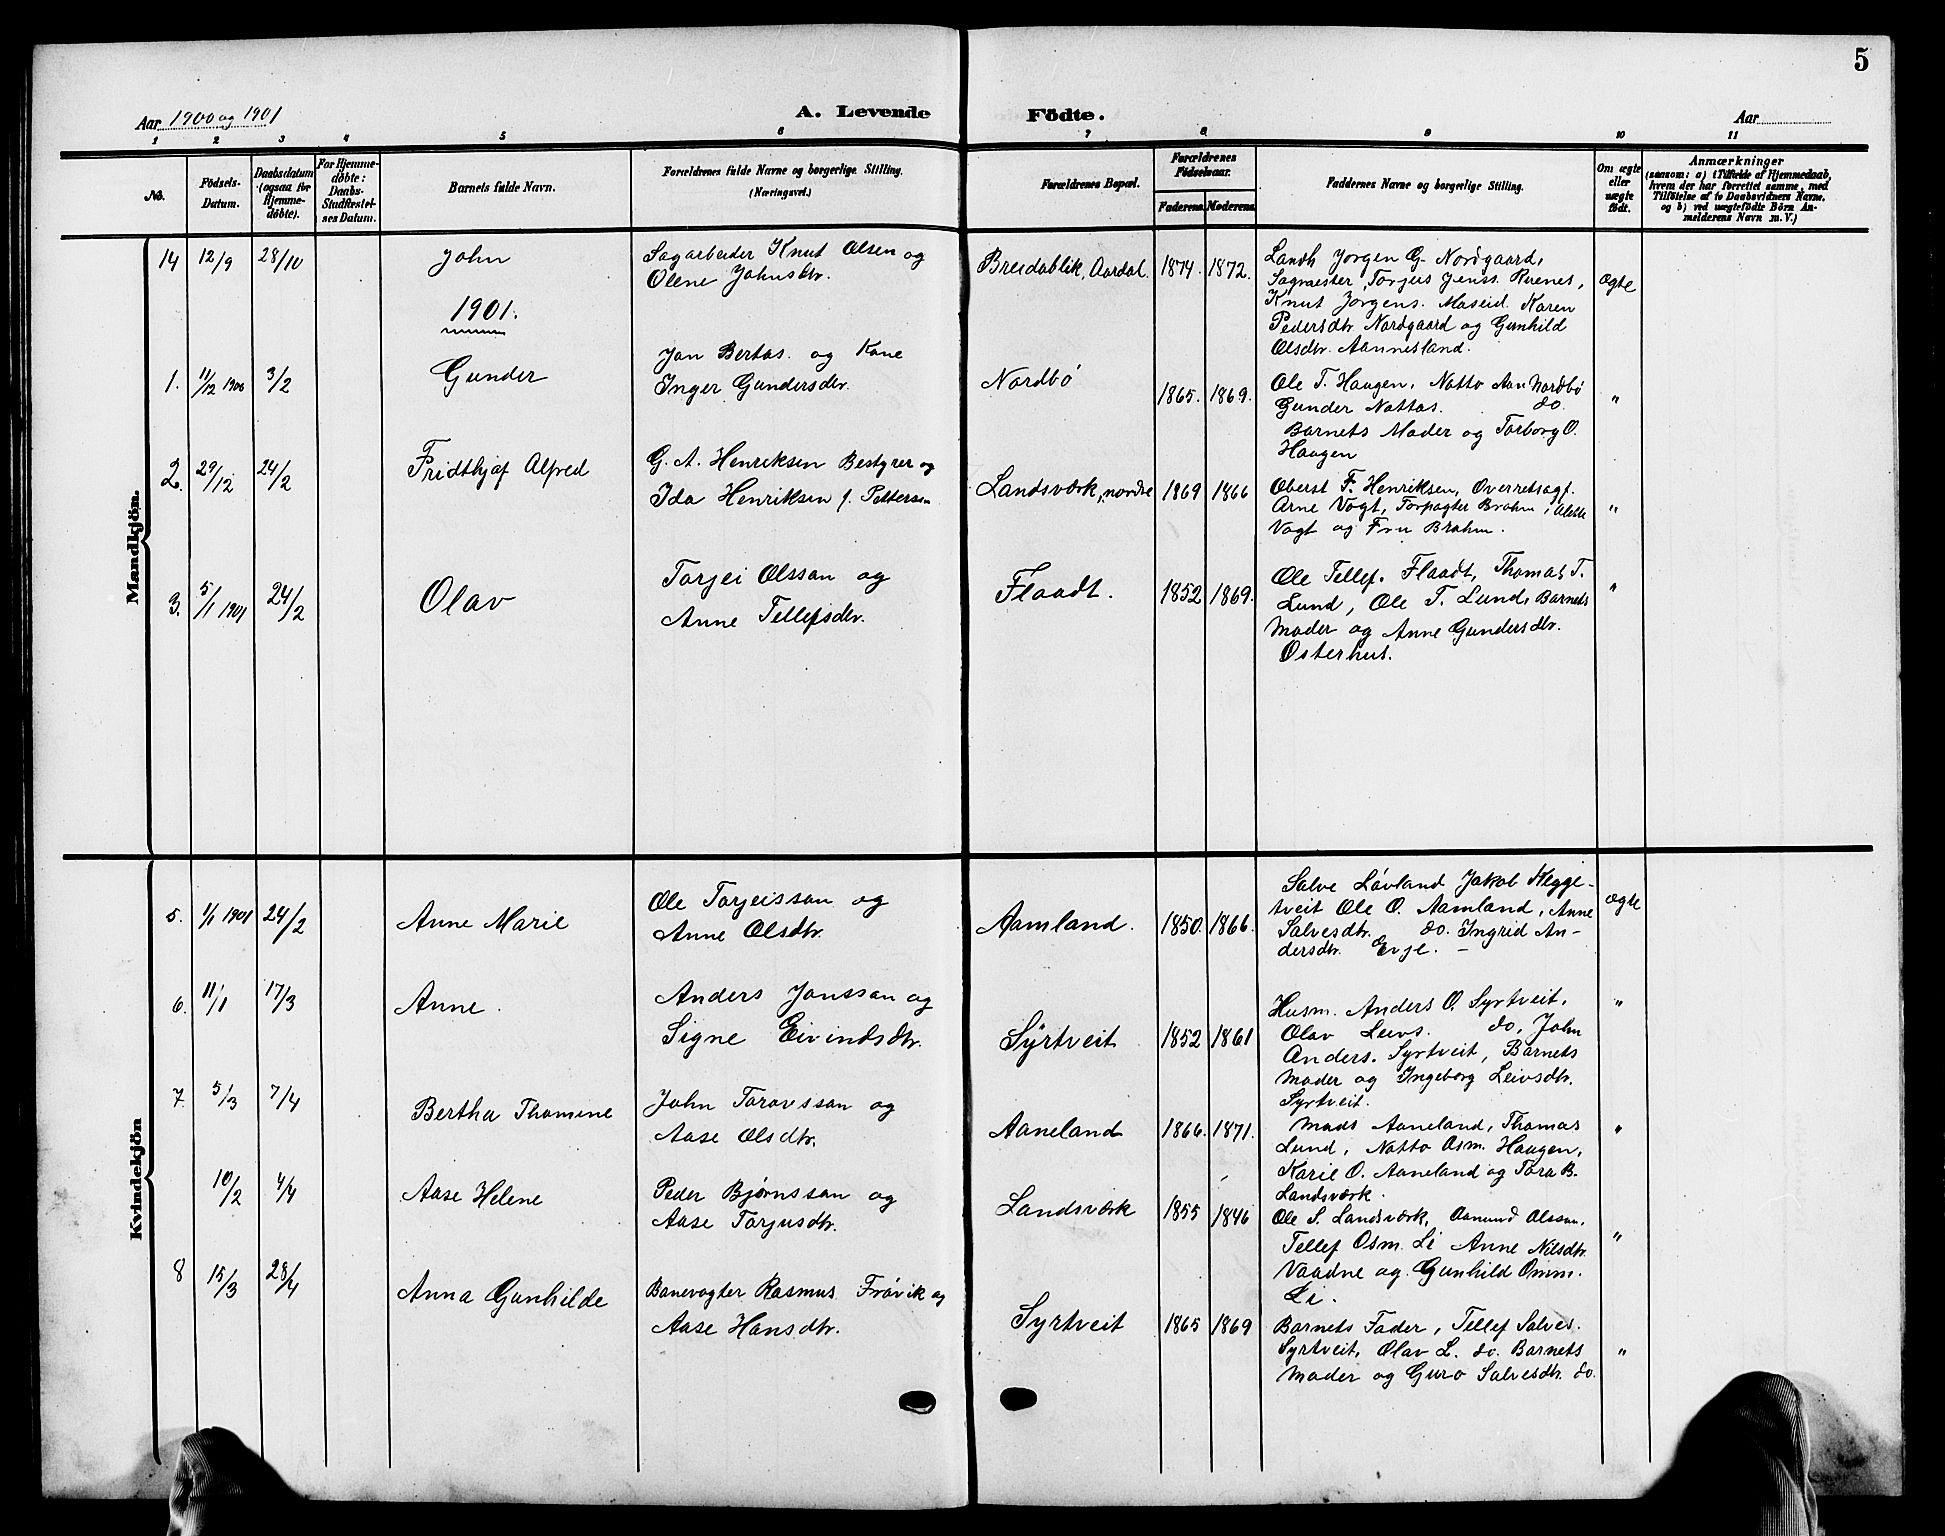 5
Aar 1900 og 1901
A. Levende Födte.
Aar
1 2 3 4 5 6 7 8 9 10 11
No.
Födsels-
Datum.
Daabsdatum
(ogsaa for
Hjemme-
döbte).
For Hjemme-
döbte:
Daabs-
Stadfæstel-
ses Datum.
Barnets fulde Navn.
Forældrenes fulde Navne og borgerlige Stilling.
(Næringsvei.)
Forældrenes Bopæl.
Forældrenes
Födselsaar.
Faderens. Moderens.
Faddernes Navne og borgerlige Stilling.
Om ægte
eller
uægte
födt.
Anmærkninger
(saasom: a) i Tilfælde af Hjemmedaab,
hvem der har forrettet samme, med
Tilföielse af to Daabsvidners Navne,
og b) ved uægtefödte Börn An-
melderens Navn m. V.)
Mandkjön.
14 12/9 28/10 John
Sagarbeider Knut Olsen og
Olene Johnsdtr.
Breidablik, Aardal. 1874. 1872.
Landh Jorgen G. Nordgaard,
Sagmester, Torjus Jenss. Ruenes,
Knut Jorgens. Maseid. Karen
Pedersdtr. Nordgaard og Gunhild
Olsdtr. Aannesland.
Ægte
1901.
1. 11/12 1900 3/2 Gunder
Jon Bertas. og Kone
Inger Gundersdtr.
Nordbö 1865. 1869.
Ole T. Haugen, Natto Aan Nordbö
Gunder Nattas. do.
Barnets Moder og Torborg O.
Haugen
"
2. 29/12 24/2 Fridthjof Alfred
G. A. Henriksen Bestyrer og
Ida Henriksen f. Pettersen
Landsværk, nordre 1869 1866
Oberst F. Henriksen, Overretsagf.
Arne Vogt, Forpagter Brahm, Alette
Vogt og Fru Brahm.
"
3. 5/1 1901 24/2 Olav
Torjei Olsson og
Anne Tellefsdtr.
Flaadt. 1852 1869.
Ole Tellef. Flaadt, Thomas T.
Lund, Ole T. Lund, Barnets
Moder og Anne Gundersdtr.
Osterhus.
"
Kvindekjön
5. 1/1 1901 24/2 Anne Marie
Ole Torjeisson og
Anne Olsdtr.
Aamland. 1850. 1866.
Salve Lövland Jakob Hegge-
tveit Ole O. Aamland, Anne
Salvesdtr. do. Ingrid An-
dersdtr. Evje. –
Ægte
6. 11/1 17/3 Anne.
Anders Jonsson og
Signe Eivindsdtr.
Syrtveit 1852 1861
Husm. Anders O. Syrtveit,
Olav Leivs. do, John
Anders. Syrtveit, Barnets
Moder og Ingeborg Leivsdtr.
Syrtveit.
"
7. 5/3 7/4 Bertha Thomine
John Toravsson og
Aase Olsdtr.
Aaneland 1866. 1871.
Mads Aaneland, Thomas
Lund, Natto Osm. Haugen,
Karie O. Aaneland og Tora B.
Landsværk.
"
10/2 4/4 Aase Helene
Peder Bjørnsson og
Aase Torjusdtr.
Landsværk 1855 1846
Ole S. Landsværk, Aanund Olsson,
Tellef Osm. Li Anne Nilsdtr.
Vaadne og Gunhild Omm.
Li.
"
8 15/3 28/4 Anna Gunhilde
Banevogter Rasmus Frövik og
Aase Hansdtr.
Syrtveit 1865 1869
Barnets Fader, Tellef Salves.
Syrtveit, Olav L. do. Barnets
Moder og Guro Salvesdtr. do.
"